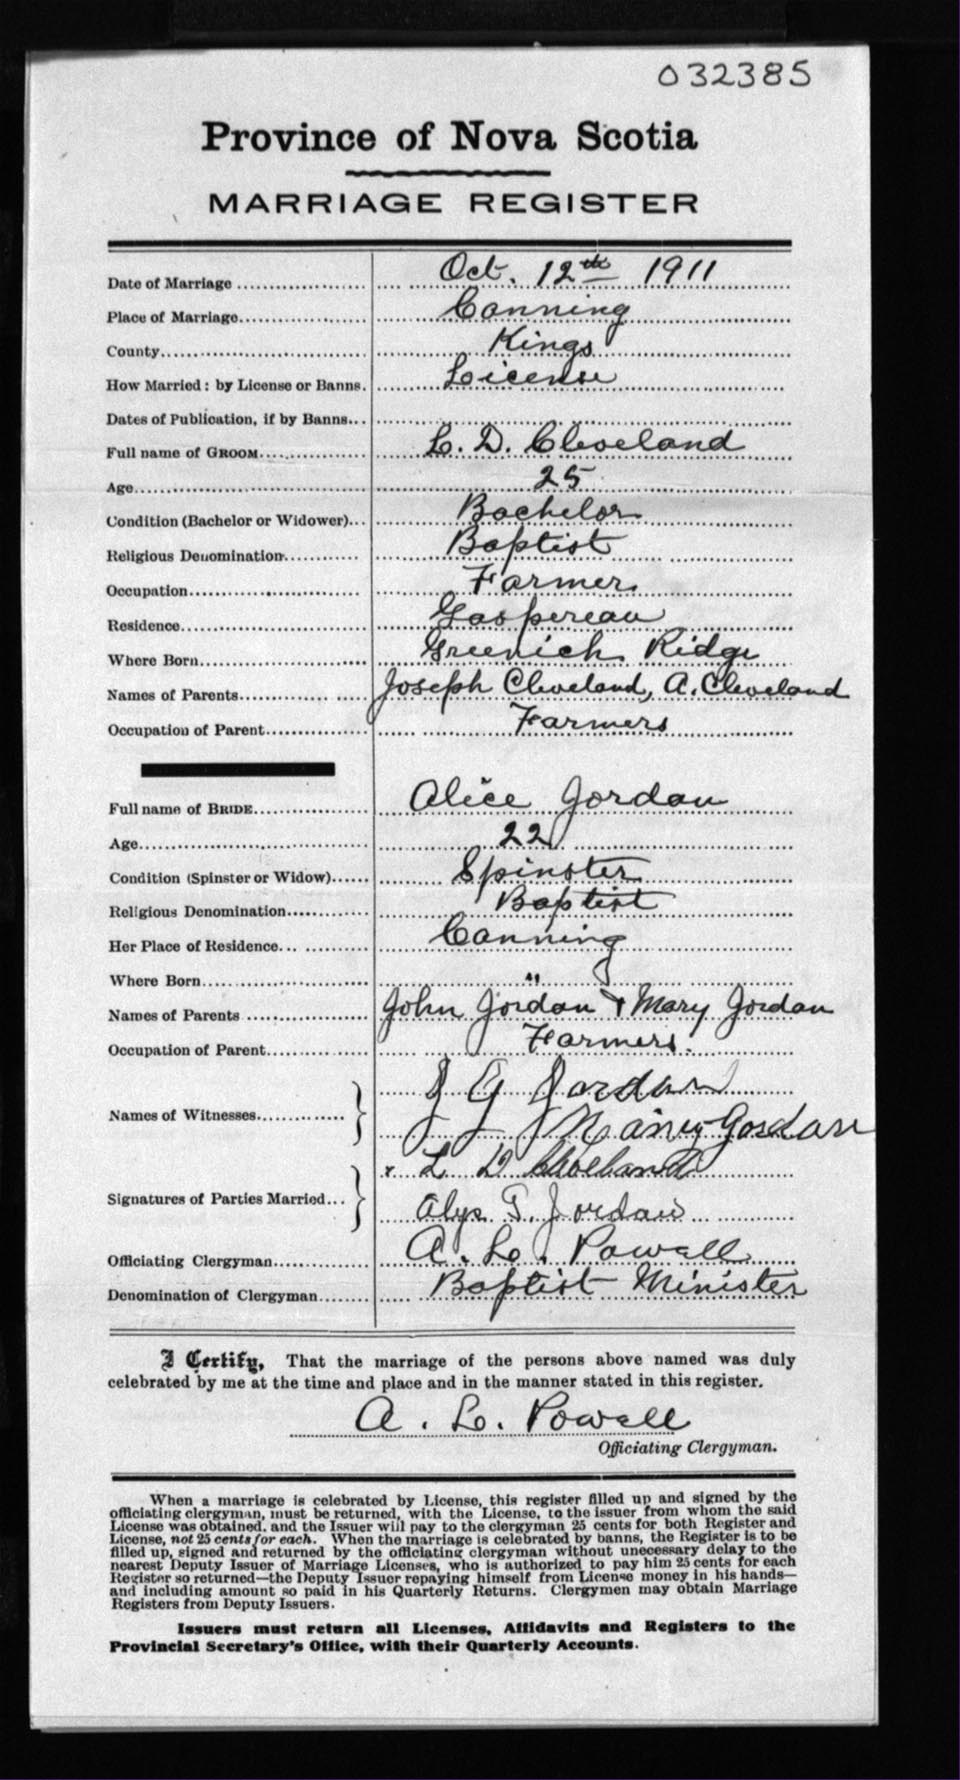 032385
Province of Nova Scotia
MARRIAGE REGISTER
Date of Marriage Oct. 12th 1911
Place of Marriage Canning
County Kings
How Married: by License or Banns. License
Dates of Publication, if by Banns
Full name of GROOM L. D. Cleveland
Age 25
Condition (Bachelor or Widower) Bachelor
Religious Denomination Baptist
Occupation Farmer
Residence Gaspereau
Where Born Greenich Ridge
Names of Parents Joseph Cleveland, A. Cleveland
Occupation of Parent Farmers
Full name of BRIDE Alice Jordan
Age 22
Condition (Spinster or Widow) Spinster
Religious Denomination Baptist
Her Place of Residence Canning
Where Born "
Names of Parents John Jordan & Mary Jordan
Occupation of Parent Farmers.
J G Jordan
Names of Witnesses
Jordan
x L D Cleveland
Signatures of Parties Married
Alys T. Jordan
Officiating Clergyman A. L. Powell
Denomination of Clergyman Baptist Minister
I Certify, That the marriage of the persons above named was duly
celebrated by me at the time and place and in the manner stated in this register.
A. L. Powell
Officiating Clergyman.
When a marriage is celebrated by License, this register filled up and signed by the
officiating clergyman, must be returned, with the License, to the issuer from whom the said
License was obtained, and the Issuer will pay to the clergyman 25 cents for both Register and
License, not 25 cents for each. When the marriage is celebrated by banns, the Register is to be
filled up, signed and returned by the officiating clergyman without unecessary delay to the
nearest Deputy Issuer of Marriage Licenses, who is authorized to pay him 25 cents for each
Register so returned—the Deputy Issuer repaying himself from License money in his hands—
and including amount so paid in his Quarterly Returns. Clergymen may obtain Marriage
Registers from Deputy Issuers.
Issuers must return all Licenses, Affidavits and Registers to the
Provincial Secretary's Office, with their Quarterly Accounts.